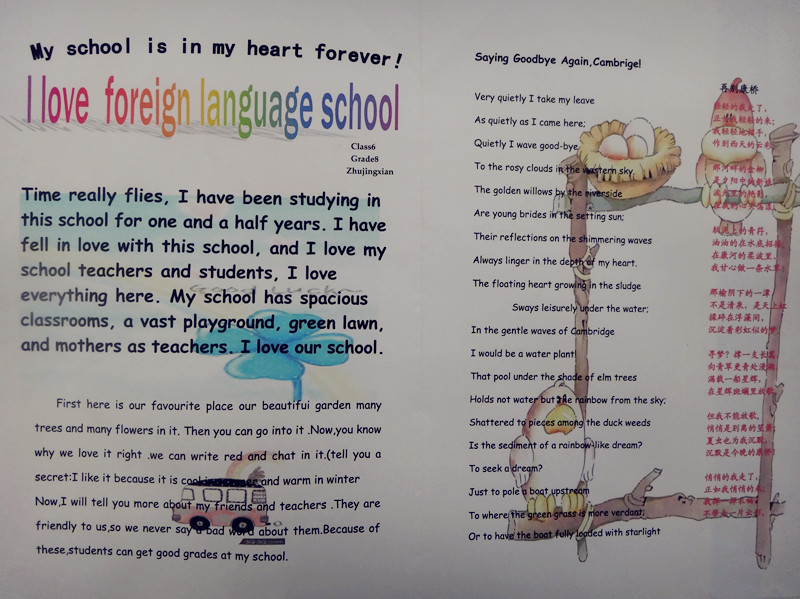 My school is in my heart forever!
I love foreign language school
Class6
Grade8
Zhujingxian
Time really flies, I have been studying in
this school for one and a half years. I have
fell in love with this school, and I love my
school teachers and students, I love
everything here. My school has spacious
classrooms, a vast playground, green lawn,
and mothers as teachers. I love our school.
First here is our favourite place our beautiful garden many
trees and many flowers in it. Then you can go into it .Now,you know
why we love it right .we can write red and chat in it.(tell you a
secret:I like it because it is and warm in winter
Now,I will tell you more about my friends and teachers .They are
friendly to us,so we never say a bad word about them.Because of
these,students can get good grades at my school.
Saying Goodbye Again,Cambrige!
Very quietly I take my leave
As quietly as I came here;
Quietly I wave good-bye
To the rosy clouds in the western sky.
The golden willows by the riverside
Are young brides in the setting sun;
Their reflections on the shimmering waves
Always linger in the depth of my heart.
The floating heart growing in the sludge
Sways leisurely under the water;
In the gentle waves of Cambridge
I would be a water plant!
That pool under the shade of elm trees
Holds not water but the rainbow from the sky;
Shattered to pieces among the duck weeds
Is the sediment of a rainbow-like dream?
To seek a dream?
Just to pole a boat upstream
To where the green grass is more verdant;
Or to have the boat fully loaded with starlight
再别康桥
轻轻的我走了，
正如我轻轻的来；
我轻轻的招手，
作别西天的云彩
那河畔的金柳
是夕阳中的新娘
波光里的艳影
在我的心头荡漾
软泥上的青荇，
油油的在水底招摇
在康河的柔波里，
我甘心做一条水草
那榆阴下的一潭
不是清泉，是天上虹
揉碎在浮藻间，
沉淀着彩虹似的梦
寻梦？撑一支长篙
向青草更青处漫溯
满载一船星辉，
在星辉斑斓里放歌
但我不能放歌，
悄悄是别离的笙箫；
夏虫也为我沉默，
沉默是今晚的康桥！
悄悄的我走了，
正如我悄悄的来
我挥一挥衣袖
不带走一片云彩